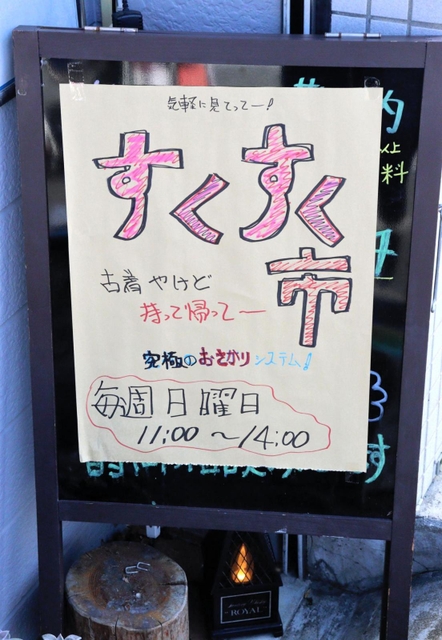 気軽に見てってー!
すくすく
市
古着やけど
持って帰ってー
究極のおさがりシステム!
毎週日曜日
11:00～14:00
料
す
ROYAL